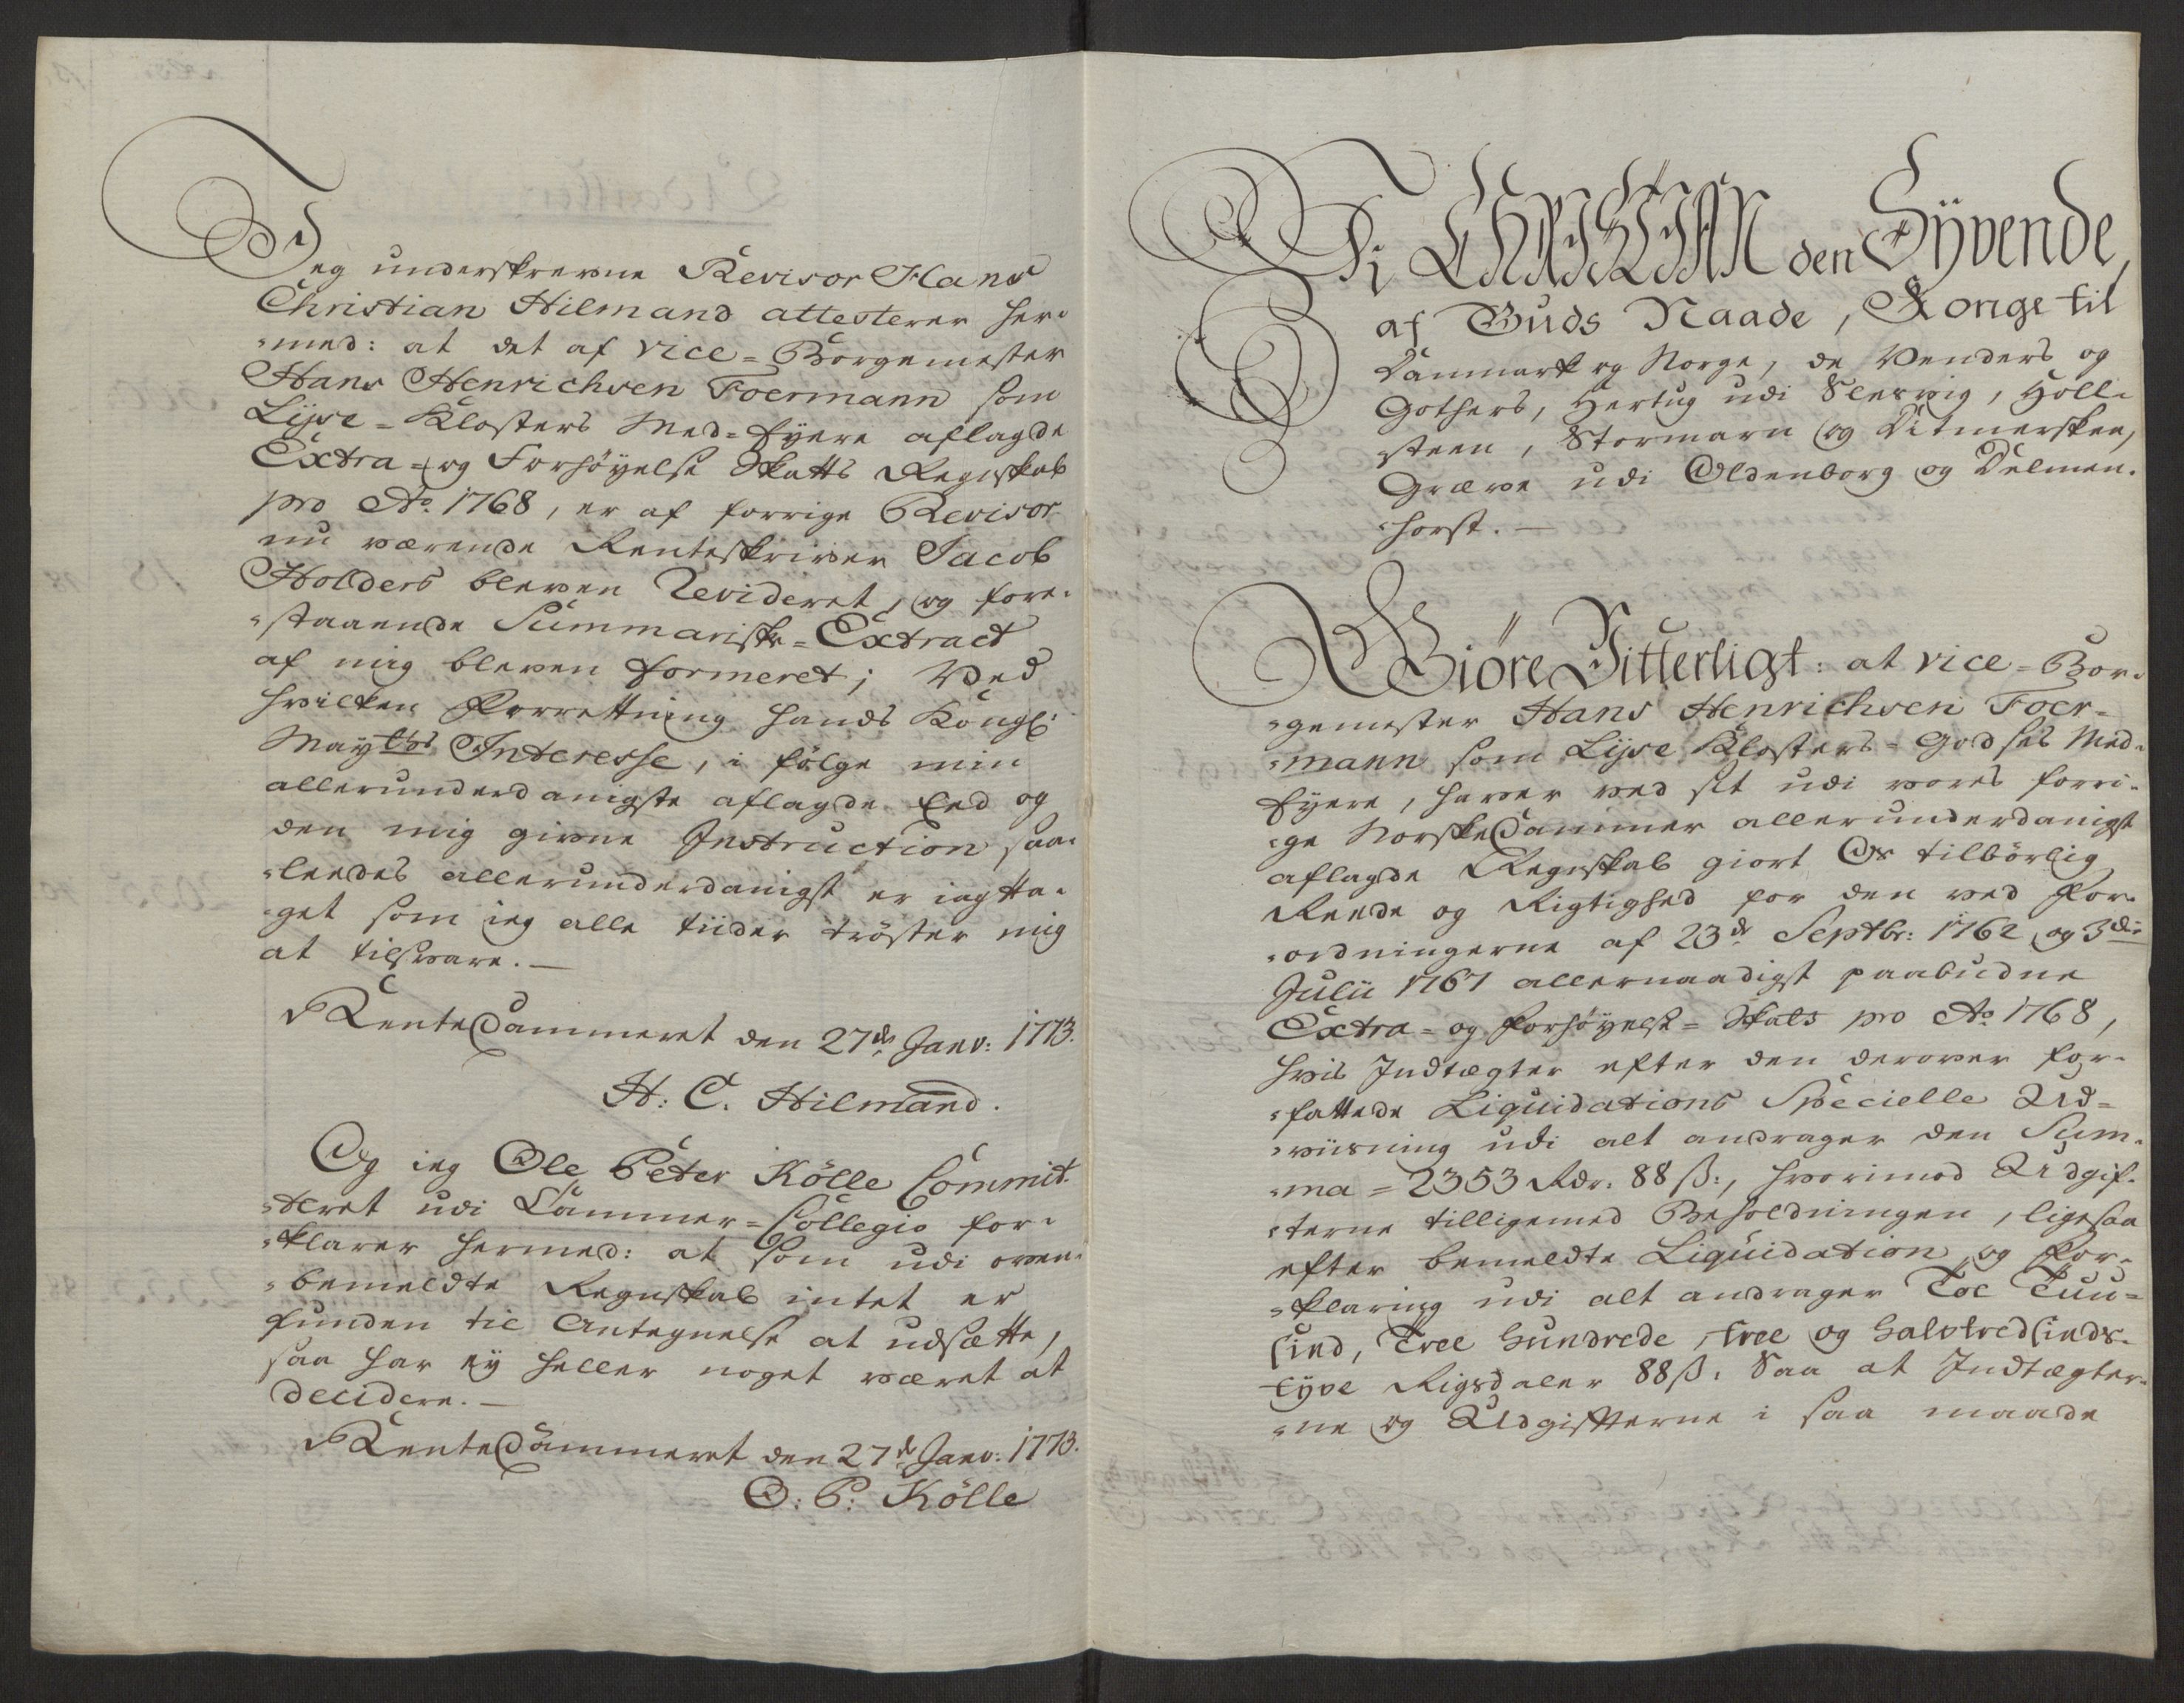 Jeg underskrevne Revisor Hans
Christian Hilmand attesterer her-
"med: at det af vice-Borgemester
Hans Henrichsen Foermann som
Lijse-Klosters Med-Eyere aflagde
Extra- og Forhøyelse Skatts Regnskab
pro Ao. 1768, er af forrige Revisor
nu værende Renteskriver Jacob
Holders bleven Revideret, og fore-
"staaende Summariske-Extract
af mig bleven formeret; Ved
hvilken Forrettning Hands Kongl:
Maytts Interesse, i følge min
allerunderdanigste aflagde Eed og
den mig givne Instruction saa-
"leedes allerunderdanigst er iagtta-
"get som ieg alle tiider trøster mig
at tilsvare.—
RenteCammeret den 27de Janv: 1773.
H: C. Hilmand.
Og ieg Ole Peter Kölle Commit-
"teret udi Cammer-Collegio for-
"klarer hermed: at som udi oven-
"bemeldte Regnskab intet er
funden til Antegnelse at udsætte,
saa har ey heller noget været at
decidere.—
RenteCammeret den 27de Janv: 1773.
O: P: Kölle
Vi CHRISTIAN den Syvende,
af Guds Naade, Konge til
Danmark og Norge, de Venders og
Gothers, Hertug udi Slesvig, Holl-
steen, Stormarn og Ditmersken,
Greve udi Oldenborg og Delmen-
"horst.—
Giøre Vitterligt: at vice-Bor-
"gemester Hans Henrichsen Foer-
"mann som Lijse Klosters-Godses Med-
Eyere, haver ved sit udi vores forri-
"ge NorskeCammer allerunderdanigst
aflagde Regnskab giort Os tilbørlig
Reede og Rigtighed for den ved For-
"ordningerne af 23de Septbr: 1762 og 3die
Julii 1767 allernaadigst paabudne
Extra- og Forhøyelse-Skats pro Ao 1768,
hvis Indtægter efter den derover for-
"fattede Liquidations Specielle Ud-
"viisning udi alt andrager den Sum-
"ma = 2353 Rdr. 88 ß:, hvorimod Udgif-
"terne tilligemed Beholdningen, ligesaa
efter bemeldte Liquidation og For-
"klaring udi alt andrager Toe Tuu-
sind, Tree Hundrede, tree og halvtredsinds-
tyve Rigsdaler 88 ß. Saa at Indtægter-
"ne og Udgifterne i saa maade